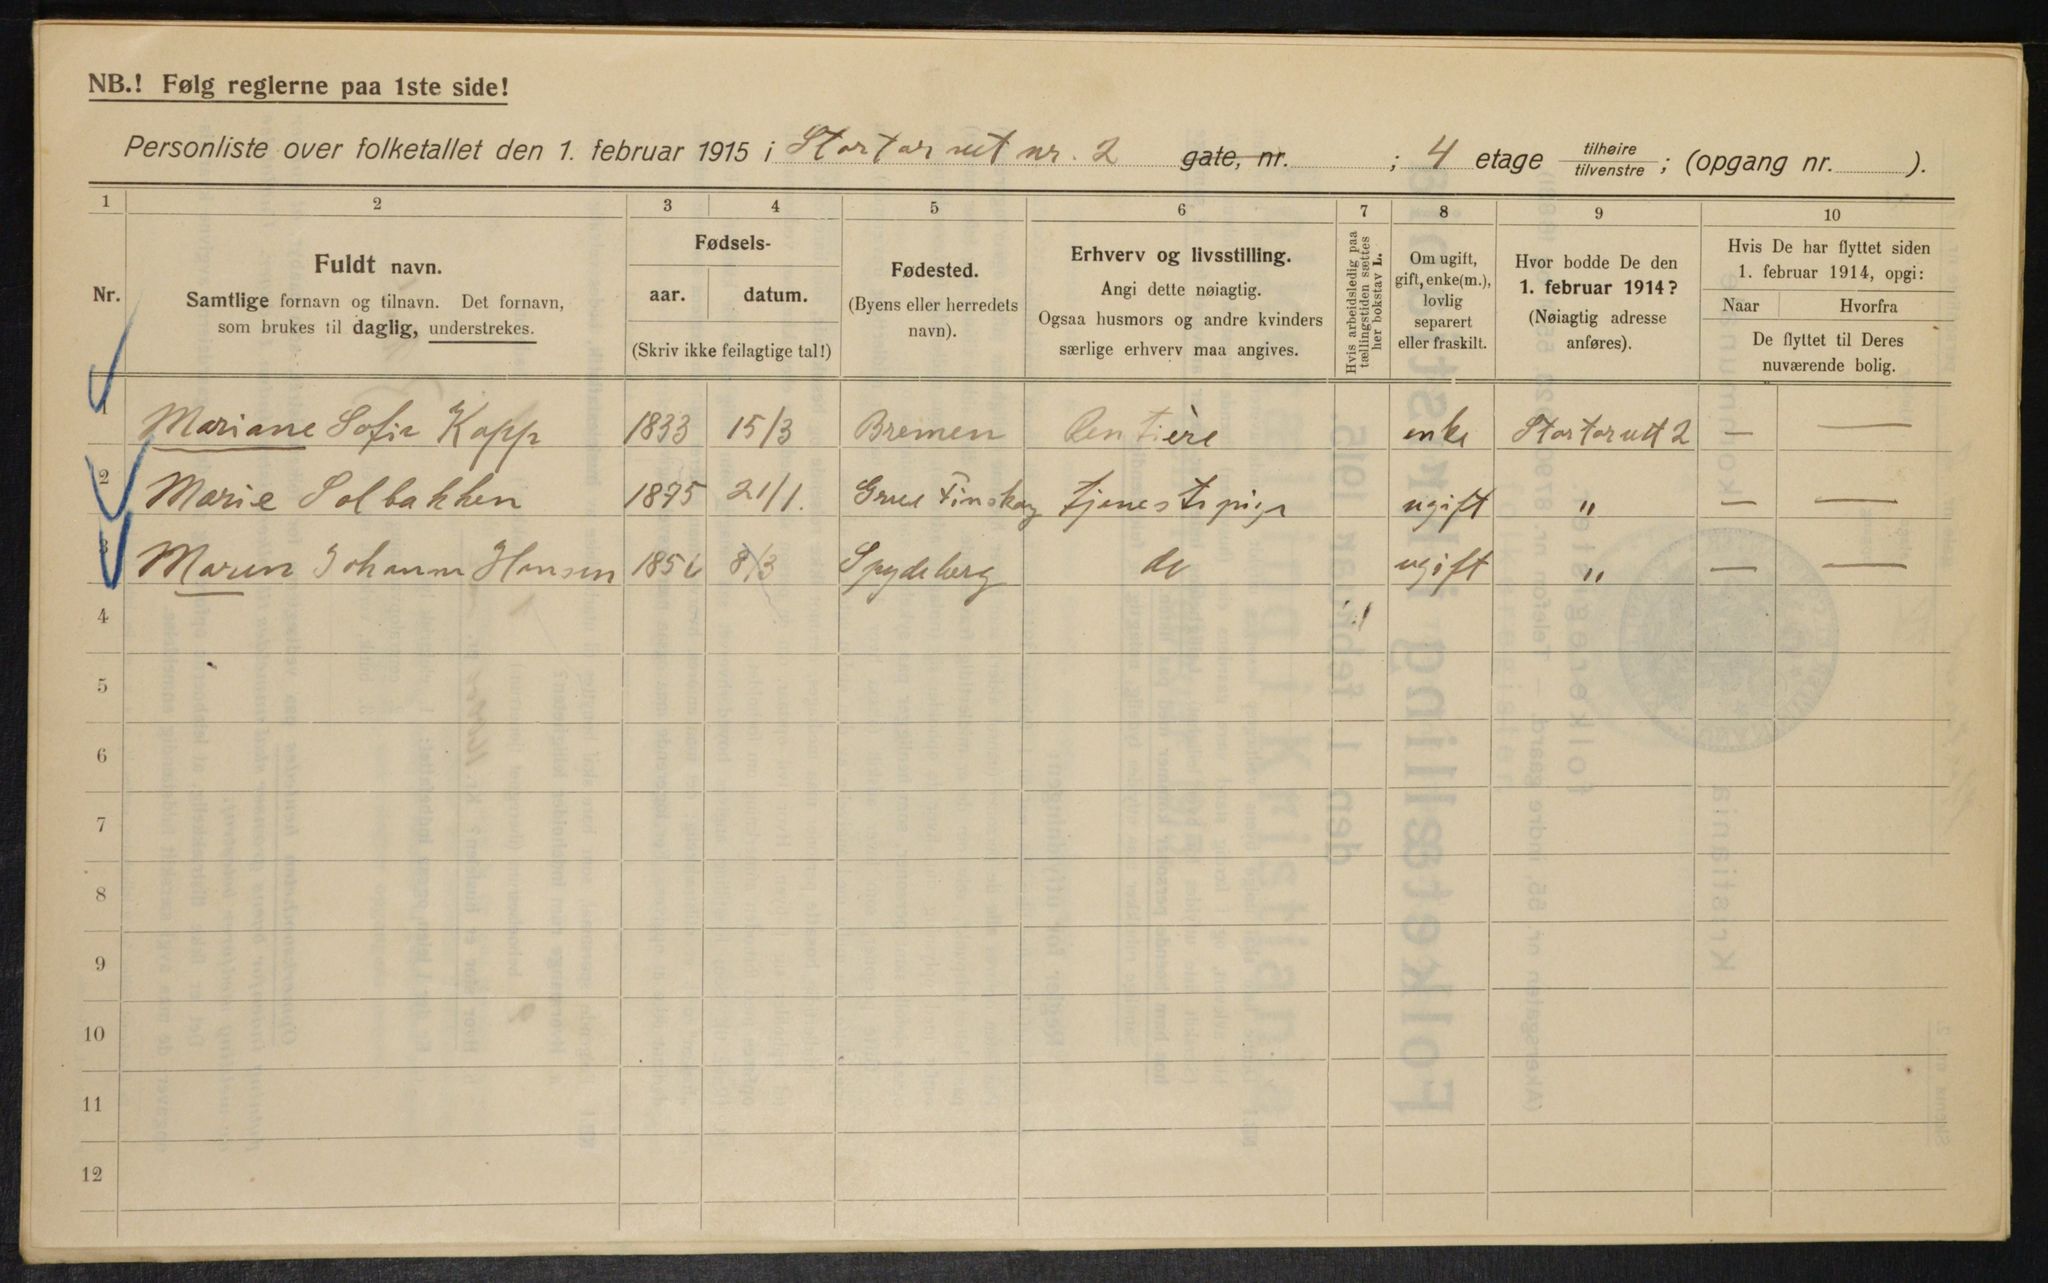 NB.! Følg reglerne paa 1ste side!
Personliste over folketallet den 1. februar 1915 i Stortorvet nr. 2 gate, nr. ; 4 etage tilhøire tilvenstre ; (opgang nr. ).
1 2 3 4 5 6 7 8 9 10
Nr.
Fuldt navn.
Samtlige fornavn og tilnavn. Det fornavn,
som brukes til daglig, understrekes.
Fødsels-
aar. datum.
(Skriv ikke feilagtige tal!)
Fødested.
(Byens eller herredets
navn).
Erhverv og livsstilling.
Angi dette nøiagtig.
Ogsaa husmors og andre kvinders
særlige erhverv maa angives.
Hvis arbeidsledig paa
tællingstiden sættes
her bokstav L.
Om ugift,
gift, enke(m.),
lovlig
separert
eller fraskilt.
Hvor bodde De den
1. februar 1914?
(Nøiagtig adresse
anføres).
Hvis De har flyttet siden
1. februar 1914, opgi:
Naar Hvorfra
De flyttet til Deres
nuværende bolig.
1 Mariane Sofie Kopp 1833 15/3 Bremen Rentière enke Stortorvet 2 — —
2 Marie Solbakken 1875 21/1. Grue Finskog tjenestepige ugift " — —
3 Maren Johanne Hansen 1856 8/3 Spydeberg do ugift " — —
4
5
6
7
8
9
10
11
12